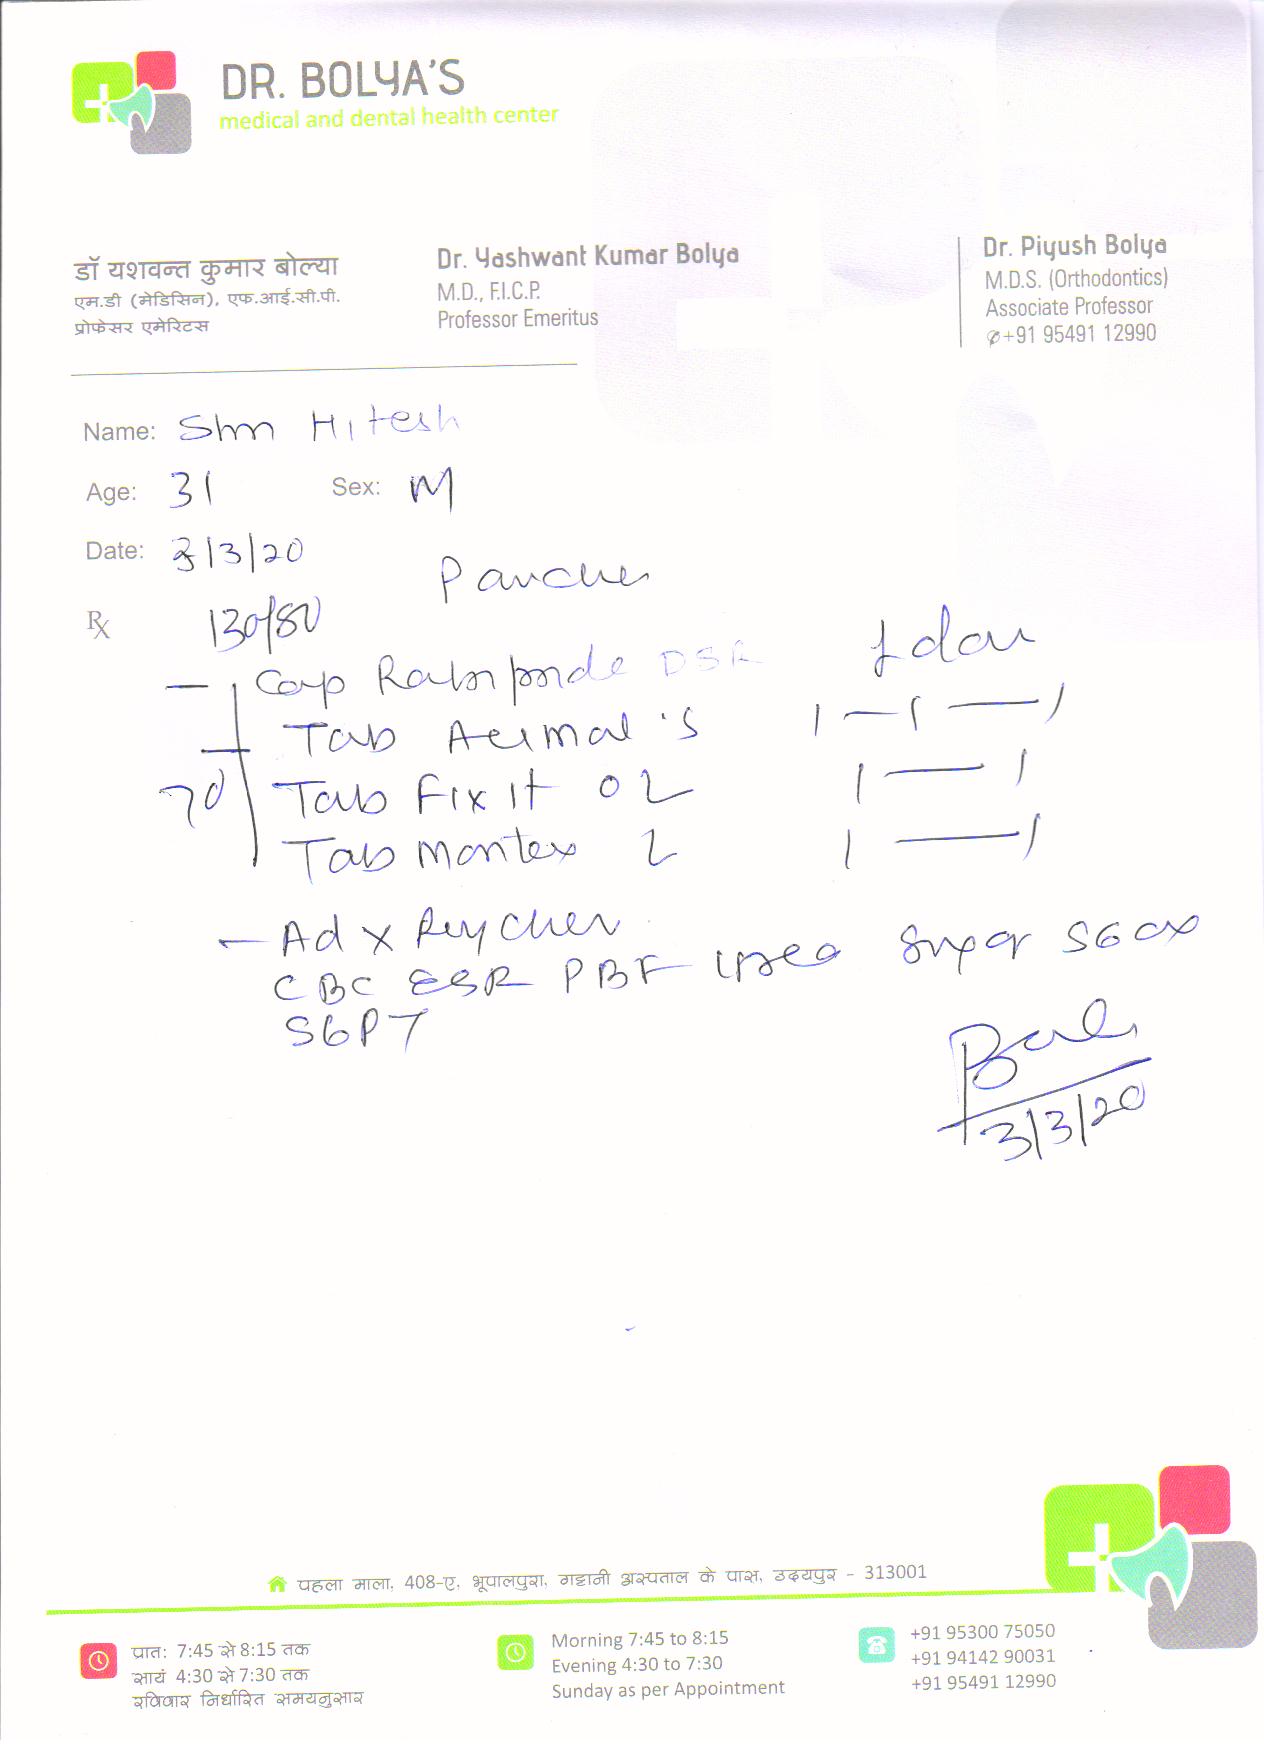 DR. BOLYA'S
medical and dental health center
डॉ यशवन्त कुमार बोल्या
एम.डी (मेडिसिन), एफ.आई.सी.पी.
प्रोफेसर एमेरिटस
Dr. Yashwant Kumar Bolya
M.D., F.I.C.P.
Professor Emeritus
Dr. Piyush Bolya
M.D.S. (Orthodontics)
Associate Professor
+91 95491 12990
Name: Hitesh
Age: 31 Sex: M
Date: 3/3/20
Rx 130/80
Cap DSR
Tab 'S 1 — 1 — 1
7d Tab Fix it O 2 1 — 1
Tab Montex 2 1 — 1
Ad X
CBC ESR PBF Urea Sugar
SGPT
3/3/20
पहला माला, 408-ए, भूपालपुरा, गट्टानी अस्पताल के पास, उदयपुर - 313001
प्रात: 7:45 से 8:15 तक
सायं 4:30 से 7:30 तक
रविवार निर्धारित समयनुसार
Morning 7:45 to 8:15
Evening 4:30 to 7:30
Sunday as per Appointment
+91 95300 75050
+91 94142 90031
+91 95491 12990